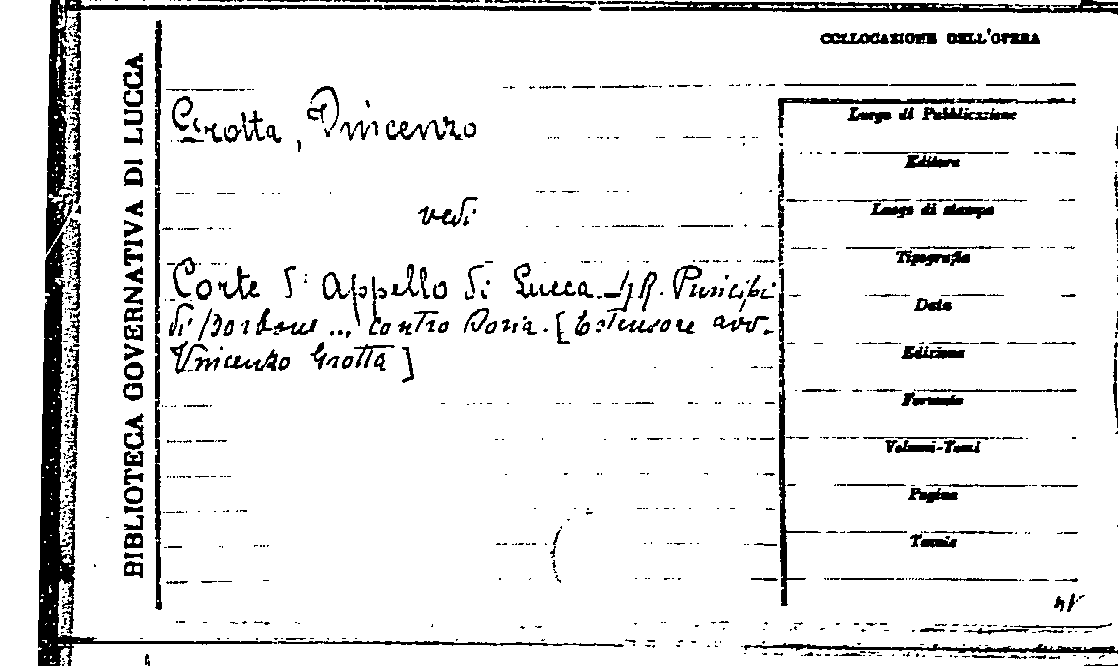 COLLOCAZIONE DELL'OPERA
BIBLIOTECA GOVERNATIVA DI LUCCA
Grotta, Vincenzo
vedi
Corte d'Appello di Lucca. Principi
di Borbone ... contro Doria. [Estensore avv.
Vincenzo Grotta]
Luogo di Pubblicazione
Editore
Luogo di stampa
Tipografia
Data
Edizione
Formato
Volumi-Tomi
Pagine
Tavole